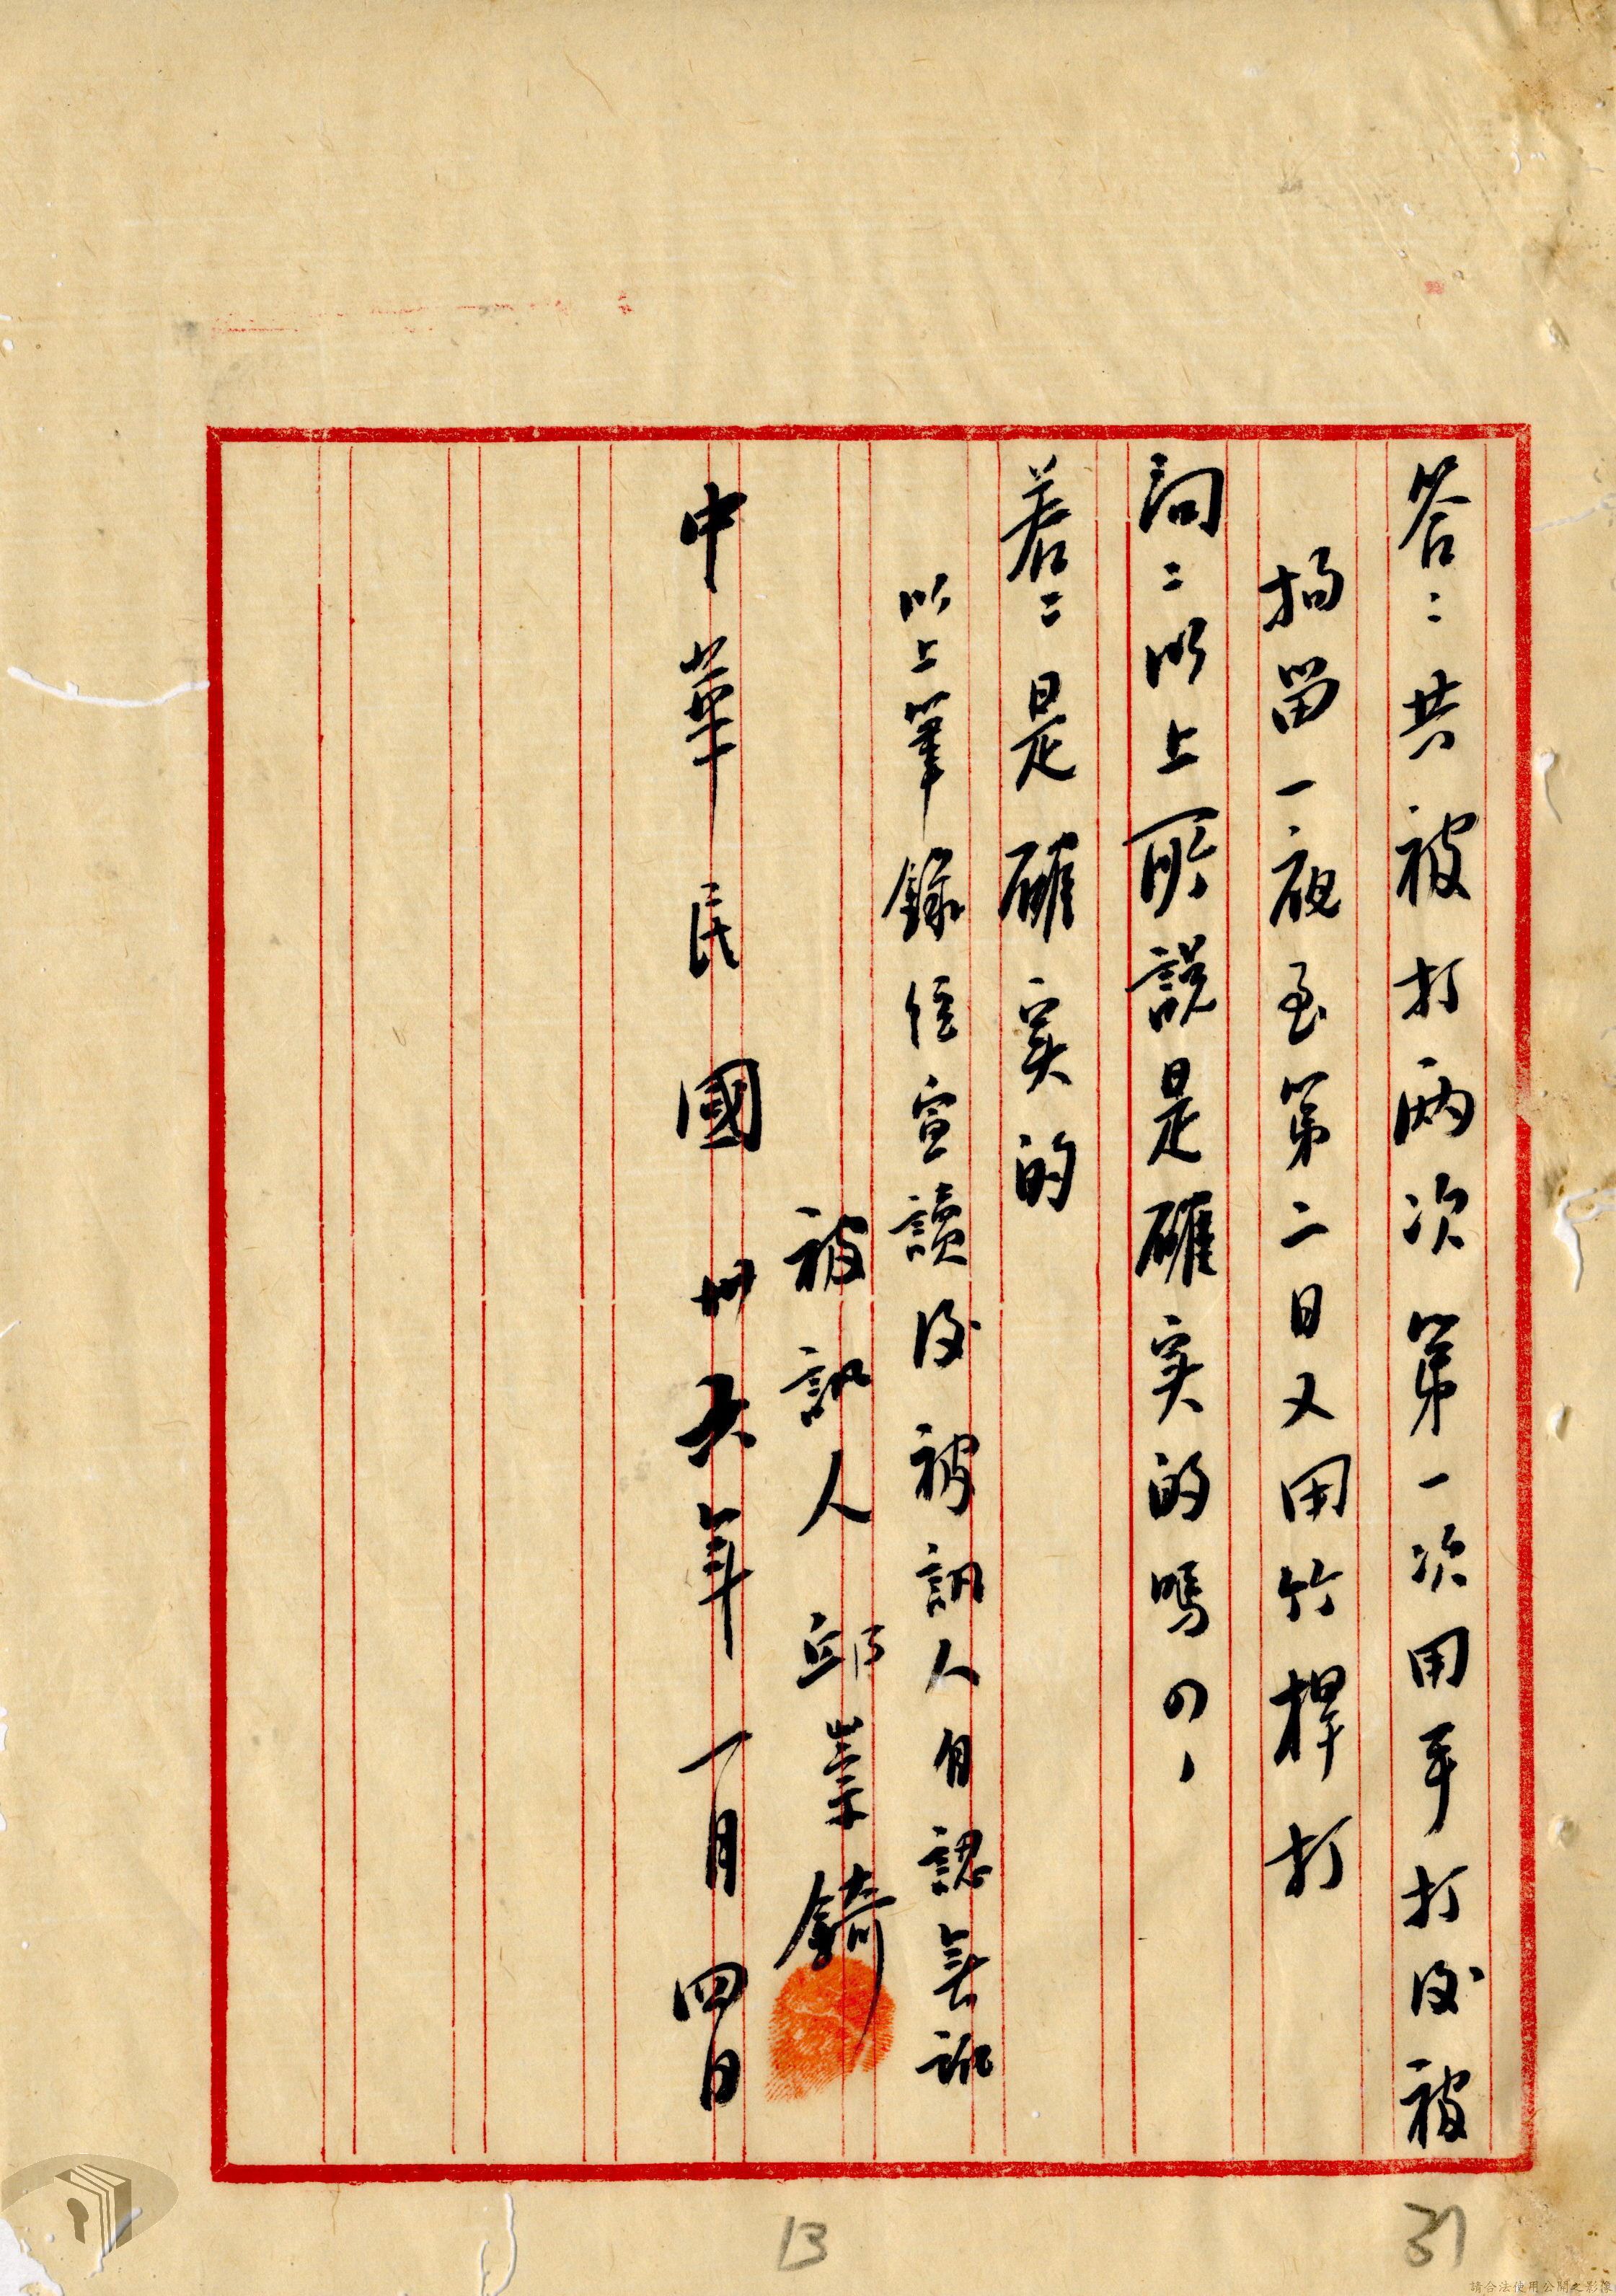 答：共被打兩次第一次用手打後被
拘留一夜至第二日又用竹桿打
問：以上所説是確实的嗎？
答：是確实的
以上筆錄經宣讀後被訊人自認無訛
被訊人邱菶錡
中華民國卅六年一月四日
13
37
請合法使用公開之影像